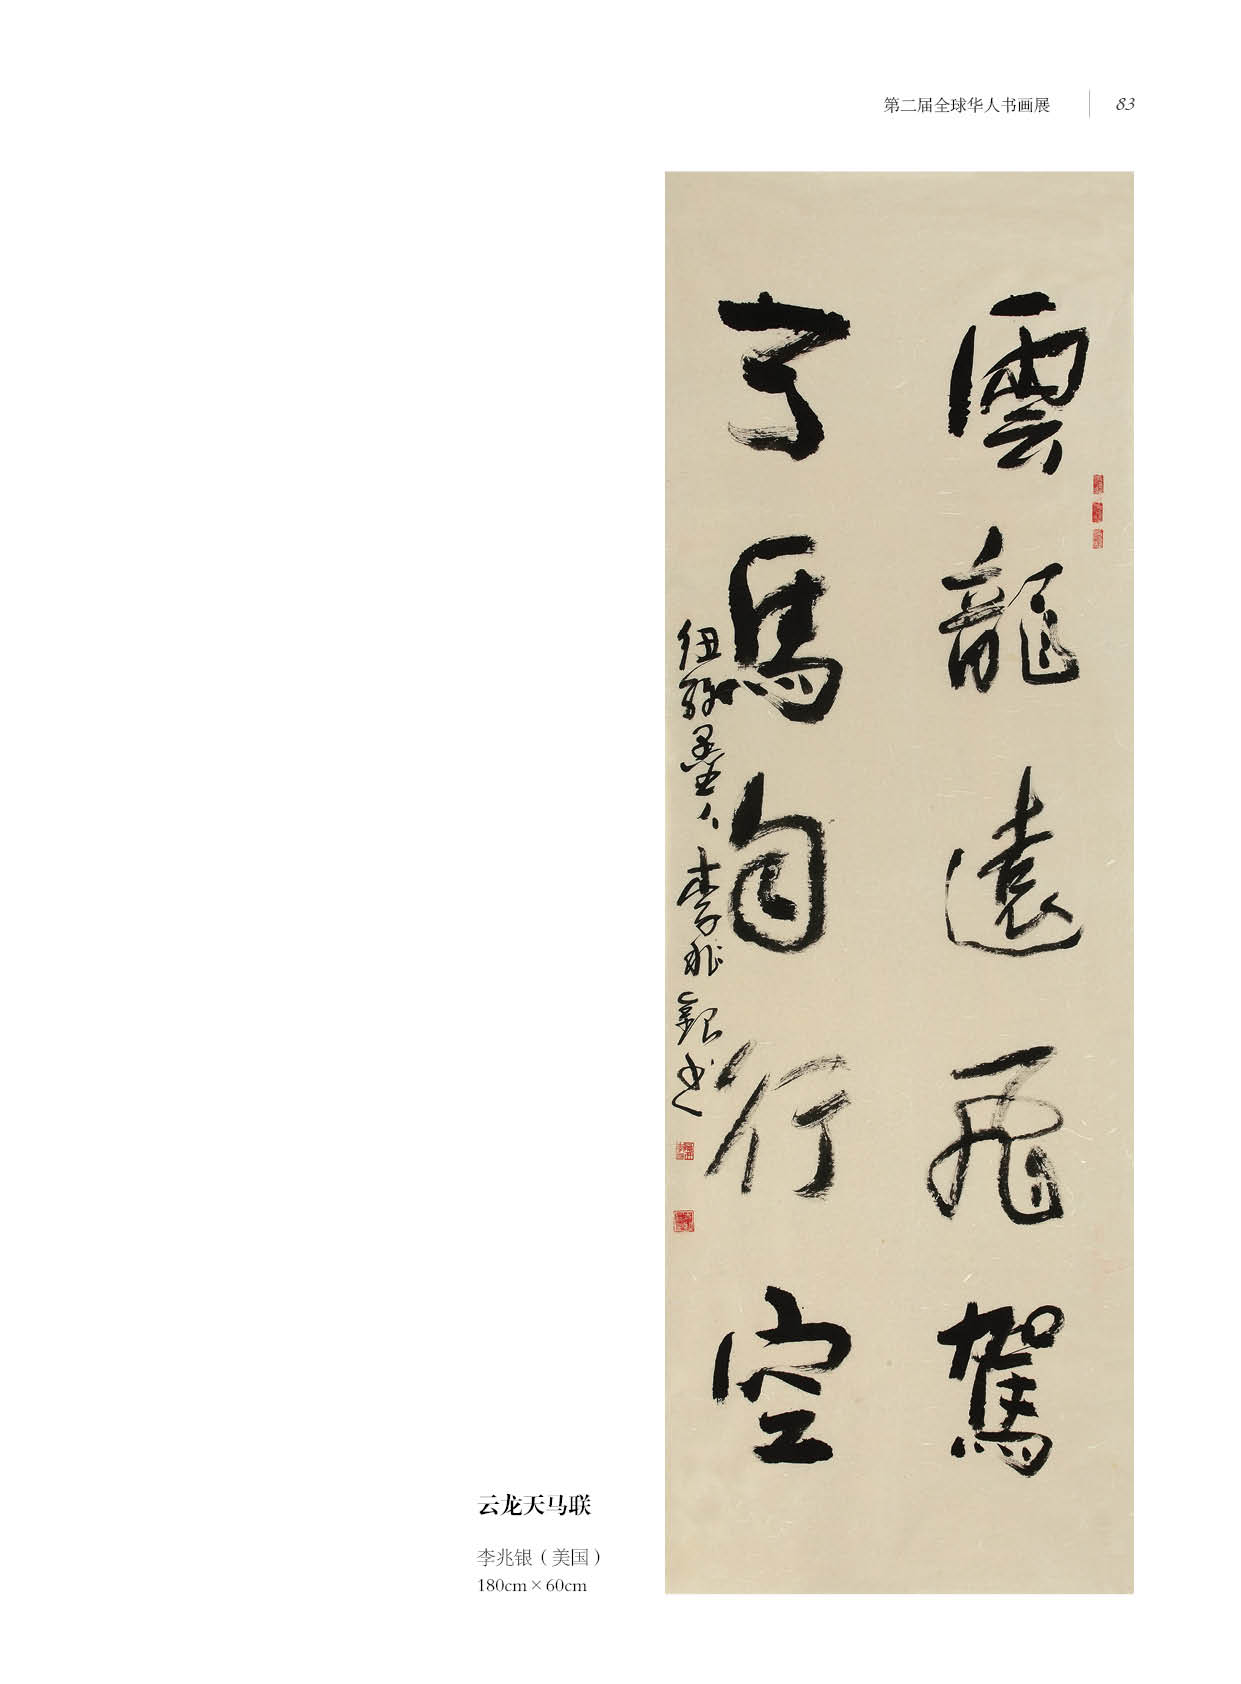 第二届全球华人书画展 83
雲龍遠飛駕
天馬自行空
紐約墨人李兆銀书
云龙天马联
李兆银（美国）
180cm×60cm